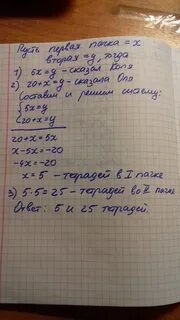 Пусть первая пачка = x
вторая = y, тогда
1) 5x=y - сказал Коля
2) 20+x=y - сказала Оля
Составим и решим систему:
{5x=y
{20+x=y
20+x=5x
x-5x=-20
-4x=-20
x=5 - тетрадей в I пачке
3) 5·5=25 - тетрадей во II пачке
Ответ: 5 и 25 тетрадей.